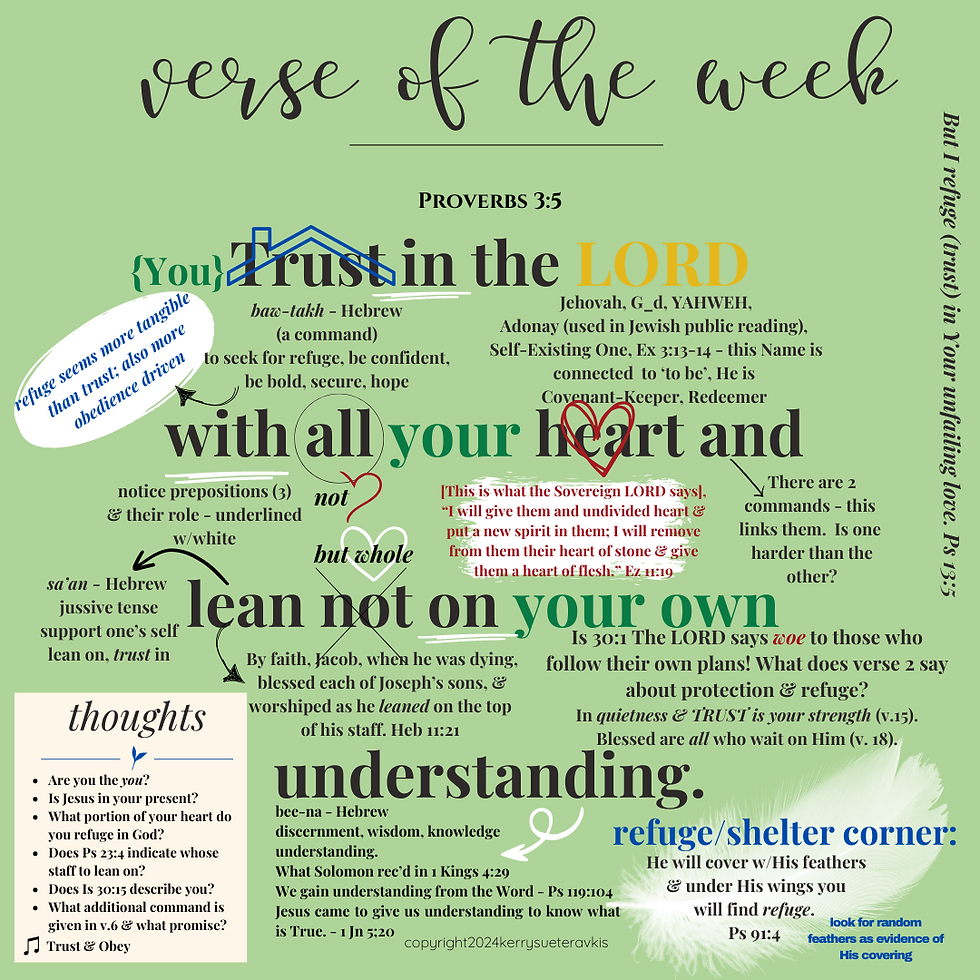 verse of the week
Proverbs 3:5
{You} Trust in the LORD
baw-takh - Hebrew
(a command)
to seek for refuge, be confident,
be bold, secure, hope
Jehovah, G_d, YAHWEH,
Adonay (used in Jewish public reading),
Self-Existing One, Ex 3:13-14 - this Name is
connected to 'to be', He is
Covenant-Keeper, Redeemer
refuge seems more tangible
than trust; also more
obedience driven
with all your heart and
notice prepositions (3)
& their role - underlined
w/white
not
but whole
[This is what the Sovereign LORD says],
“I will give them and undivided heart &
put a new spirit in them; I will remove
from them their heart of stone & give
them a heart of flesh.” Ez 11:19
There are 2
commands - this
links them. Is one
harder than the
other?
lean not on your own
sa'an - Hebrew
jussive tense
support one's self
lean on, trust in
By faith, Jacob, when he was dying,
blessed each of Joseph's sons, &
worshiped as he leaned on the top
of his staff. Heb 11:21
Is 30:1 The LORD says woe to those who
follow their own plans! What does verse 2 say
about protection & refuge?
In quietness & TRUST is your strength (v.15).
Blessed are all who wait on Him (v. 18).
understanding.
bee-na - Hebrew
discernment, wisdom, knowledge
understanding.
What Solomon rec'd in 1 Kings 4:29
We gain understanding from the Word - Ps 119:104
Jesus came to give us understanding to know what
is True. - 1 Jn 5:20
thoughts
Are you the you?
Is Jesus in your present?
What portion of your heart do
you refuge in God?
Does Ps 23:4 indicate whose
staff to lean on?
Does Is 30:15 describe you?
What additional command is
given in v.6 & what promise?
Trust & Obey
refuge/shelter corner:
He will cover w/His feathers
& under His wings you
will find refuge.
Ps 91:4
look for random
feathers as evidence of
His covering
copyright2024kerrysueteravkis
But I refuge (trust) in Your unfailing love. Ps 13:5